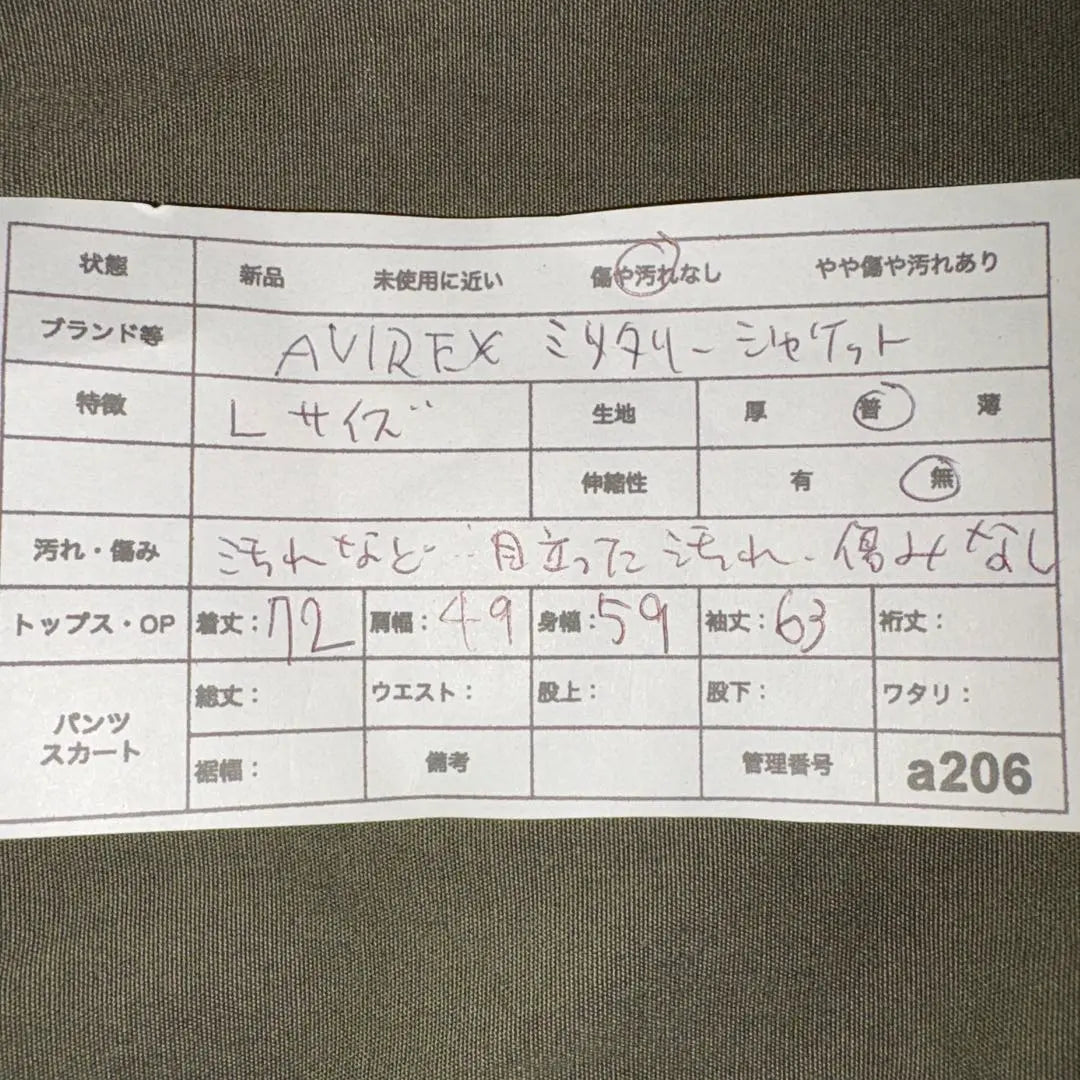 状態 新品 未使用に近い 傷や汚れなし やや傷や汚れあり
ブランド等 AVIREX ミリタリージャケット
特徴 L サイズ 生地 厚 普 薄
伸縮性 有 無
汚れ・傷み 汚れなど 目立った汚れ、傷みなし
トップス・OP 着丈：72 肩幅：49 身幅：59 袖丈：63 裄丈：
パンツ スカート
総丈： ウエスト： 股上： 股下： ワタリ：
裾幅： 備考 管理番号 a206